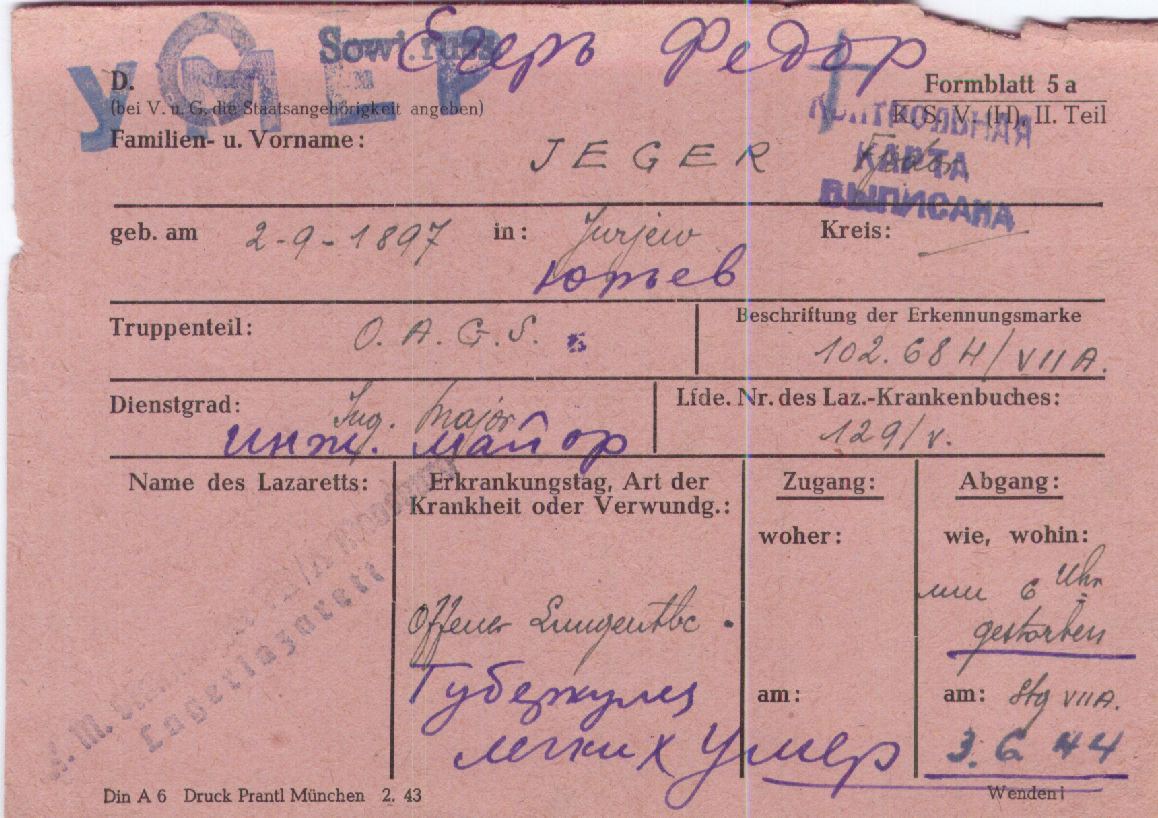 УМЕР
Sowj. russ
Егерь Федор
D.
(bei V. u. G. die Staatsangehörigkeit angeben)
Formblatt 5 a
K. S. V. (H), II. Teil
КОНТРОЛЬНАЯ
КАРТА
ВЫПИСАНА
Familien- u. Vorname: JEGER Fjodor
geb. am 2-9-1897 in: Jurjew Kreis:
Юрьев
Truppenteil: O. A. G. S.
Beschriftung der Erkennungsmarke
102.684/VII A.
Dienstgrad: Ing. Major
инж. майор
Lfde. Nr. des Laz.-Krankenbuches:
129/v.
Name des Lazaretts:
Lagerlazarett
Erkrankungstag, Art der
Krankheit oder Verwundg.:
Offener Lungentbc.
Туберкулез
легких Умер
Zugang:
woher:
am:
Abgang:
wie, wohin:
um 6 Uhr
gestorben
am: Stg VII A.
3. 6. 44
Din A 6 Druck Prantl München 2. 43
Wenden!